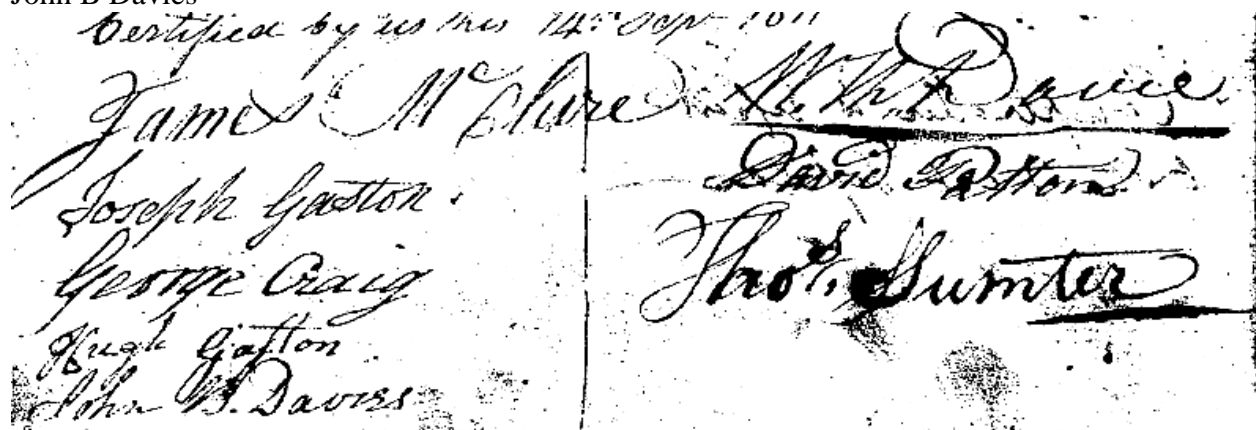 John B Davies
Certified by us this 14th Sept 1811
James McClure
Joseph Gaston.
George Craig
Hugh Gaston
John B. Davies
W. R. Davie
David Patton
Thos. Sumter